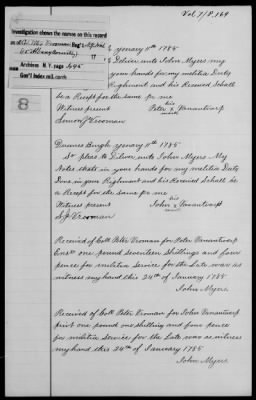 Vol 7/8, 169
Information shows the names on this record
Col. Peter Vrooman Reg't
(Albany County)
Archives N. Y. page 495
Gen'l Index rail. cards
8
January 11th 1785
Deliver unto John Myers my
your hands for my militia Duty
Righment and his Receved Schall
be a Recept for the same pr me
his
Witness present Peter X Vanantwerp
mark
Simon J Vrooman
Duanes Burgh January 11th 1785
Sr pleas to Diliver unto John Myers My
Notes thats in your hands for my militia Duty
Done in your Righment and his Receved Schall be
a Recept for the same pr me
his
Witness present John X Vanantwerp
mark
S. J. Vrooman
Received of Coll Peter Vroman for Peter Vanantwerp
Esqr one pound Seventeen Shillings and four
pence for militia Service for the Late war as
witness my hand this 24th of January 1785
John Myers.
Received of Coll Peter Vroman for John Vanantwerp
one pound one shilling and four pence
pr militia Service for the Late war as witness
my hand this 24th of January 1785
John Myers